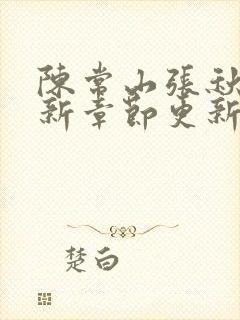 陳常山張秋
新章節更新
楚白